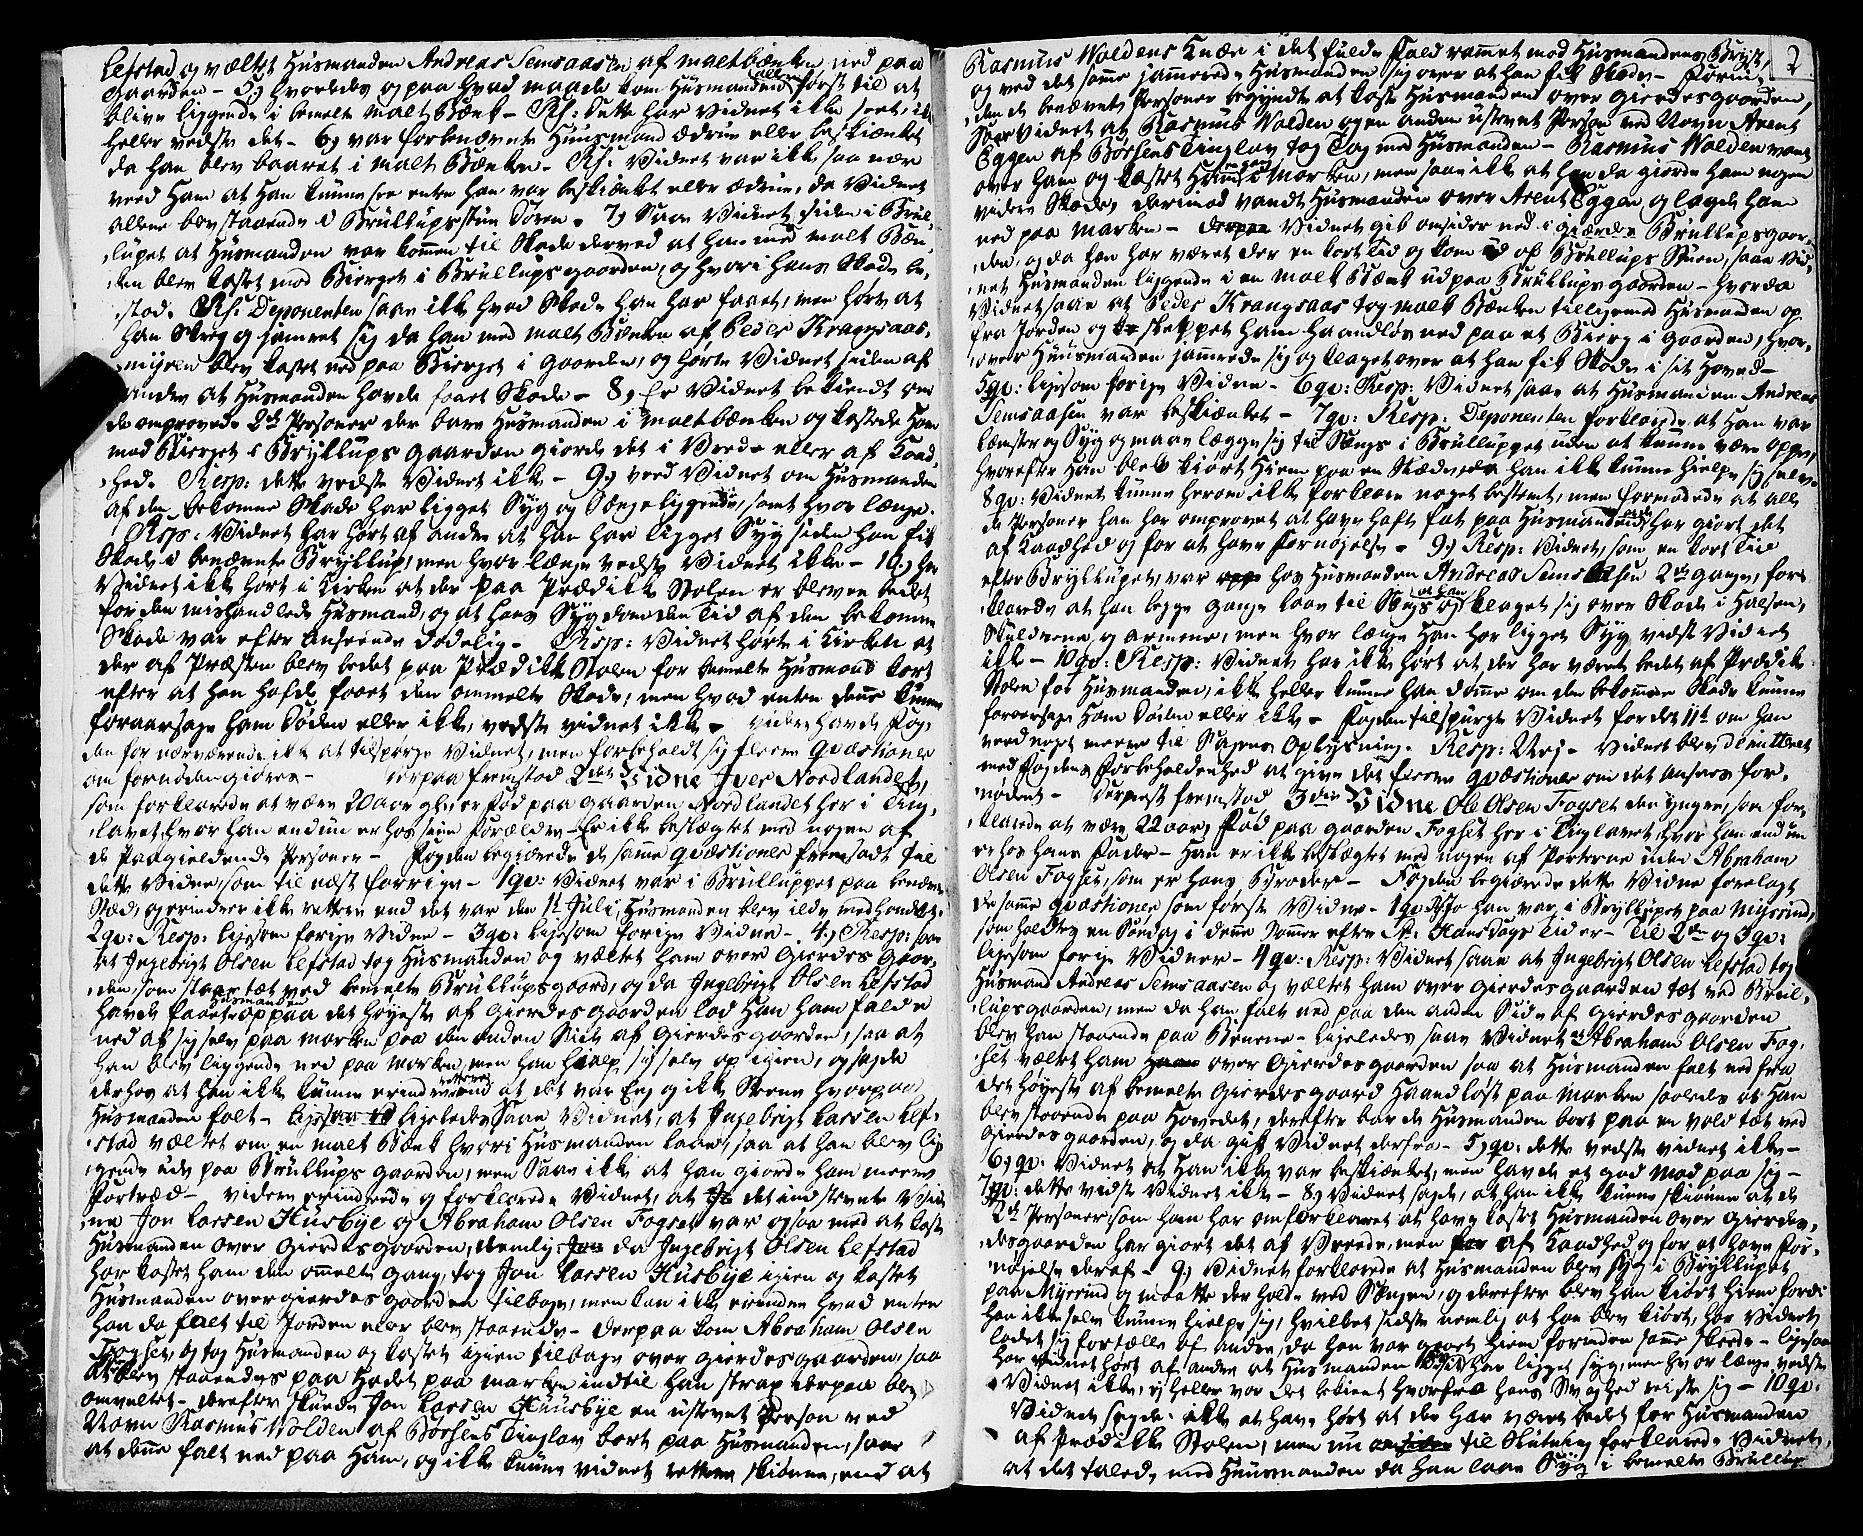 Lefstad og væltet Huusmanden Andreas Semsaasen af maltbænken ned paa
Gaarden – 5) hvorledes og paa hvad maade kom Huusmanden aller først til at
blive liggende i bemelte malt Bænk – Rs: dette har Vidnet ikke seet, ik
heller vedste det – 6) var forbenævnte Huusmand ædrue eller beskienket
da han blev baaret i malt Bænken – Rs: Vidnet var ikke saa nær
ved Ham at Han kunne see enten han var beskienket eller ædrue, da Vidnet
allene blev staaende i Brüllupsstue Døren – 7) Saae Vidnet siden i Brül-
lupet at Huusmanden var kommen til Skade derved at han med malt Bæn-
ken blev kastet mod Bierget i Brüllupsgaarden, og hvori hans Skade be-
stod. Rs: Deponenten saae ikke hvad Skade han har faaet, men hørte at
han Skreg og jamret sig da han med malt Bænken af Peder Krangsaas-
myren blev kastet ned paa Bierget i gaarden, og hørte Vidnet siden af
andre at Huusmanden havde faaet Skade – 8) Er Vidnet bekiendt om
de omprovede 2de Personer der bare Huusmanden i maltbænken og kastede Ham
mod Bierget i Bryllups gaarden giorde det i Vrede eller af Kaad-
hed. Resp: dette vedste Vidnet ikke – 9) veed Vidnet om Huusmanden
af den bekomne Skade har ligget Syg og Sængeliggende, samt hvor længe.
Resp: Vidnet har hørt af andre at han har ligget Syg siden han fik
Skade i benævnte Bryllup, men hvor længe vedste Vidnet ikke – 10) har
Vidnet ikke hørt i Kirken at der paa Prædike Stolen er bleven bedet
for den mishandlede Huusmand, og at hans Sygdom den Tid af den bekomne
Skade var efter Anseende dødelig – Resp: Vidnet hørte i Kirken at
der af Præsten blev bedet paa Prædike Stolen for bemelte Huusmand kort
efter at han hafde faaet den ommelte Skade, men hvad enten denne kunne
foraarsage ham Døden eller ikke, vedste vidnet ikke – Videre havde Fog-
den for nærværende ikke at tilspørge Vidnet, men forbeholdt sig fleere Qvæstioner
om fornøden giøres – derpaa fremstod 2det Vidne Iver Nordlandet,
som forklarede at være 20 aar gl: er Fød paa gaarden Nordlandet her i Ting-
lavet, hvor han endnu er hos sine Forældre – Er ikke beslægtet med nogen af
de Paagieldende Personer – Fogden begierede de samme Qvæstioner fremsadt til
dette Vidne, som til næst forrige – 1qv: Vidnet var i Brülluppet paa benævnte
Stæd, og erindrer ikke rettere end det var den 1te Julj, Huusmanden blev ilde medhandlet.
2qv: Resp: ligesom forige Vidne – 3qv: ligesom forige Vidne – 4) Resp: saae
at Ingebrigt Olsen Lefstad tog Huusmanden og væltet ham over Gierdes Gaar-
den, som staar tæt ved bemelte Brüllupsgaard, og da Ingebrigt Olsen Lefstad
havde faaet Huusmanden op paa det høyeste af Gierdesgaarden lod Han ham falde
ned af sig selv paa marken paa den anden Side af Gierdesgaarden, saa at
han blev liggende ned paa marken, men han hialp sig selv op igien, og sagde
derhos at han ikke kunne erindre rettere end at det var Eng og ikke Steene hvorpaa
Huusmanden falt – ligeledes Saae Vidnet, at Ingebrigt Larsen Lef-
stad væltet om en malt Bænk hvori Huusmanden laae, saa at han blev lig-
gende ude paa Brüllups gaarden, men Saae ikke at han giorde ham meere
Fortræd – videre erindrede og forklarede Vidnet, at det indstevnte Vid-
ne Jon Larsen Huusbye og Abraham Olsen Fogset var ogsaa med at kaste
Huusmanden over Gierdesgaarden, nemlig da Ingebrigt Olsen Lefstad
har kastet ham den omelte gang, tog Jon Larsen Huusbye igien og kastet
Huusmanden over gierdesgaarden tilbage, men kan ikke erindre hvad enten
han da falt til Jorden eller blev staaende – derpaa kom Abraham Olsen
Fogset, og tog Huusmanden og kastet igien tilbage over gierdesgaarden, saa
at han blev staaendes paa Hodet paa marken indtil han strax derpaa blev
omveltet – derefter skiøde Jon Larsen Huusbye en ustevnt Person ved
Navn Rasmus Wolden af Børsens Tinglav bort paa Huusmanden, saae
at denne falt ned paa Ham, og ikke kunne vidnet rettere skiønne, end at
2
Rasmus Woldens Knæe i det fulde Fald rammet mod Huusmandens Bryst,
og ved det samme jamrede Huusmanden sig over at han fik Skade – Forin-
den de benævnte Personer begyndte at kaste Huusmanden over Gierdesgaarden,
Saae Vidnet at Rasmus Wolden og en anden ustevnt Person ved Navn Arent
Eggen af Børsens Tinglav tog Tag med Huusmanden – Rasmus Wolden vant
over ham og kastet Ham i Marken, men saae ikke at han da giorde ham nogen
videre Skade, derimod vandt Huusmanden over Arent Eggen og lagde ham
ned paa Marken – Vidnet gik omsider ned i Brüllupsgaar-
den, og da han har været der en kort Tid og kom ud af Brüllups Stuen, saae Vid-
net Huusmanden liggende i en malt Bænk ud paa Brüllups gaarden – hvorda
Vidnet saae at Peder Krangsaas tog malt Bænken tilligemed Huusmanden op
fra Jorden og skeppet ham haandløs ned paa et Bierg i gaarden, hvor-
over Huusmanden jamrede sig og klaget over at han fik Skade i sit Hoved –
5qv: ligesom forige Vidne – 6qv: Resp: Vidnet saae at Huusmanden Andreas
Semsaasen var beskienket – 7qv: Resp: Deponenten forklarede at Han var
lemster og Syg og maate lægge sig til Sengs i Brülluppet uden at kunne være oppe,
hvorefter Ham blev kiørt Hiem paa en Slæde, da han ikke kunne hielpe sig selv.
8qv: Vidnet kunne herom ikke forklare noget bestemt, men formodede at alle
de Personer han har omprovet at have haft fat paa Huusmanden har giort det
af Kaadhed og for at have Fornøjelse – 9) Resp: Vidnet, som en kort Tid
efter Bryllupet, var hos Huusmanden Andreas Semsaasen 2de Gange, for-
klarede at han begge gange laae til Sengs og klaget sig over Skade i Halsen,
Skuldrene og armene, men hvor længe Han har ligget Syg vidste Vidnet
ikke – 10qv: Resp: Vidnet har ikke hørt at der har været bedet af Prædike
Stolen for Huusmanden, ikke heller kunne han dømme om den bekomne Skade kunne
foraarsage Ham Døden eller ikke – Fogden tilspurgte Vidnet for det 11te om han
veed noget meere til Sagens Oplysning. Resp: Nej – Vidnet blev demitteret
med Fogdens Forbeholdenhed at give det fleere Qvæstioner om det ansees for-
nødent – dernest fremstod 3die Vidne Ole Olsen Fogset den yngre, som for-
klarede at være 22 aar, Fød paa gaarden Fogset her i Tinglavet, hvor han endnu
er hos hans Fader – Han er ikke beslægtet med nogen af Parterne uden Abraham
Olsen Fogset, som er hans Broder – Fogden begierede dette Vidne forelagt
de samme Qvæstioner som første Vidne – 1qv: Jo han var i Bryllupet paa Myrrind,
som holdtes en Søndag i denne Sommer efter St: Hansdags Tider – til 2den og 3qv:
ligesom forige Vidner – 4qv: Resp: Vidnet saae at Ingebrigt Olsen Lefstad tog
Huusmand Andreas Semsaasen og væltet ham over Gierdesgaarden tæt ved Brül-
lupsgaarden, men da han falt ned paa den anden Side af Gierdesgaarden
blev han staaende paa Benene – ligeledes saae Vidnet at Abraham Olsen Fog-
set væltet ham over Gierdesgaarden saa at Huusmanden falt ned fra
det høyeste af bemelte Gierdesgaard Haandløst paa Marken saaledes at Han
blev staaende paa Hovedet, derefter bar de Huusmanden bort paa en vold tæt ved
Gierdesgaarden, og da gik Vidnet derfra – 5)qv: dette vedste vidnet ikke –
6)qv: Vidnet at Han ikke var beskienket, men havde et god Mod paa sig –
7qv: dette vedste Vidnet ikke – 8) Vidnet sagde, at han ikke kunne skiønne at de
2de Personer som han har omforklaret at have kastet Huusmanden over Gierde-
desgaarden har giort det af Vreede, men af Kaadhed og for at have For-
nøjelse deraf – 9) Vidnet forklarede at Huusmanden blev syg i Bryllupet
paa Myrrind og maatte der holde ved Sengen, og derefter blev han kiørt hiem fordi
han ikke selv kunne hielpe sig, hvilket sidste nemlig at han blev kiørt, har Vidnet
ladet sig fortælle af andre, da han var gaaet hiem forinden samme skeede – ligesom
har Vidnet hørt af andre at Huusmanden siden har ligget syg, men hvor længe vedste
Vidnet ikke, ej heller var det bekient hvorfra hans Svaghed reiste sig – 10qv:
Vidnet sagde ikke at have hørt at der har været bedet for Huusmanden
af Prædike Stolen, men nu til Slutning forklarede Vidnet,
at det talede med Huusmanden da han laae Syg i bemelte Brüllup